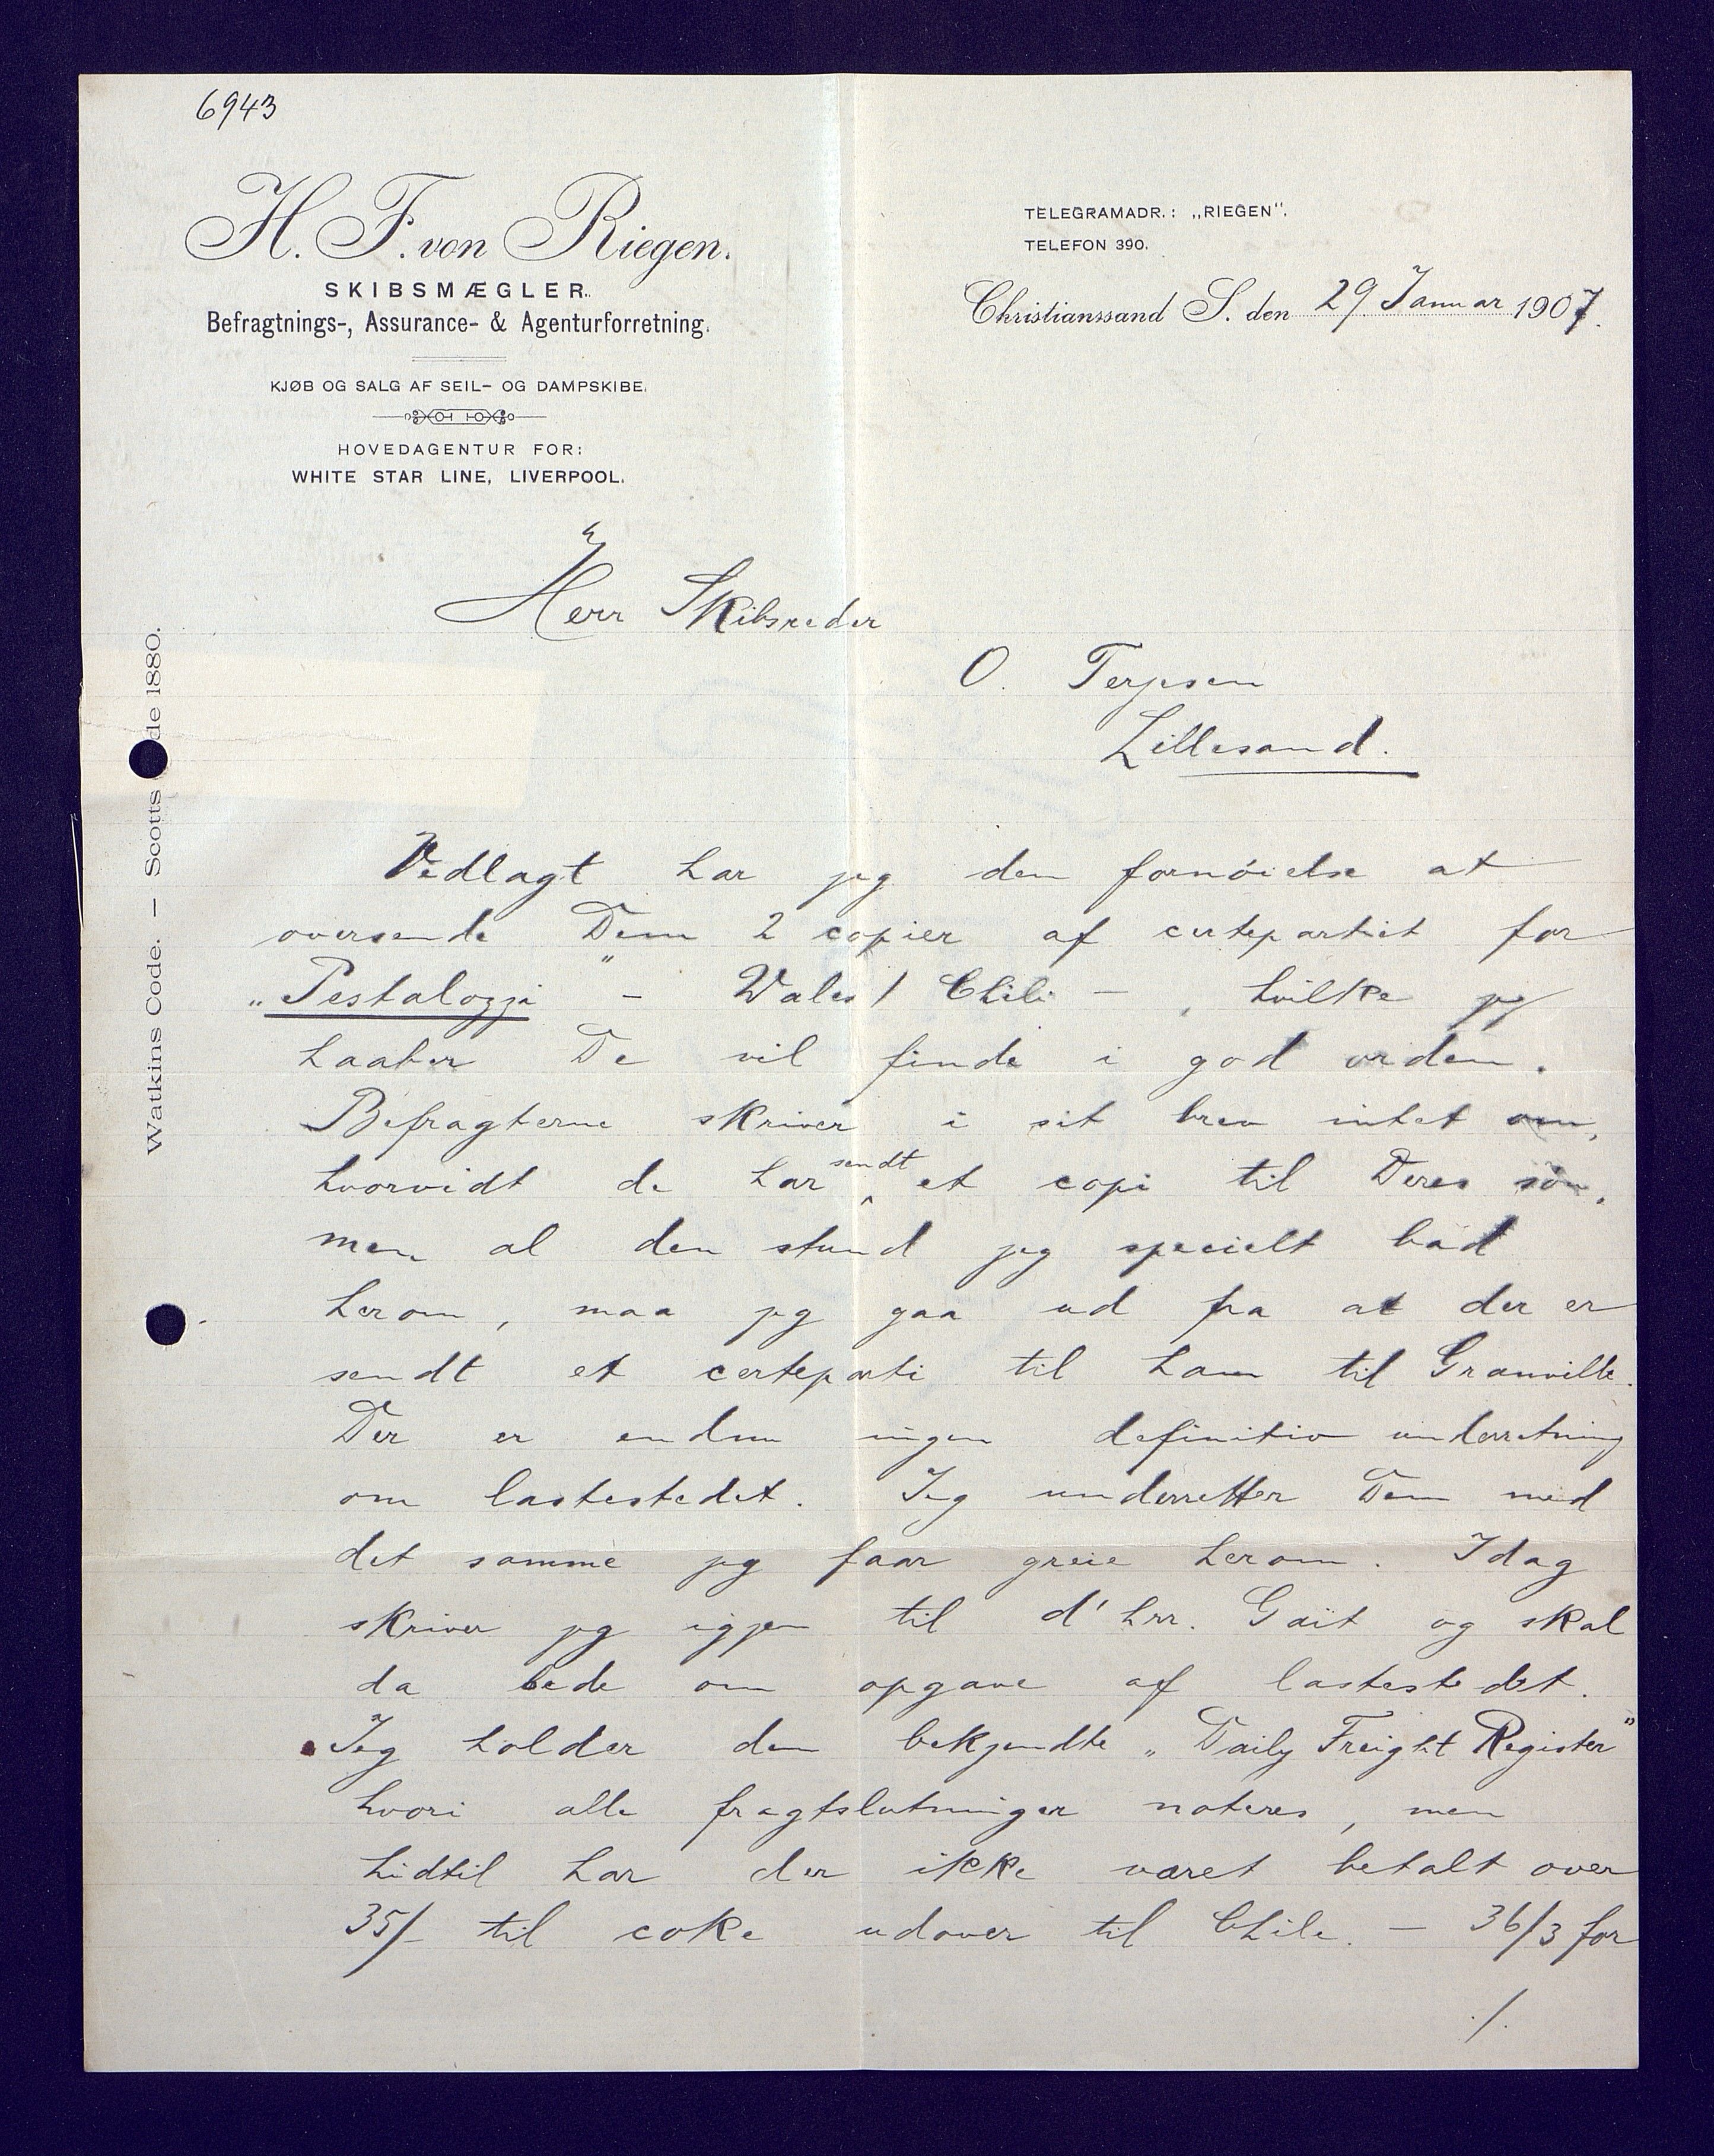 6943
H. F. von Riegen.
SKIBSMÆGLER.
Befragtnings-, Assurance- & Agenturforretning.
KJØB OG SALG AF SEIL- OG DAMPSKIBE.
HOVEDAGENTUR FOR:
WHITE STAR LINE, LIVERPOOL.
TELEGRAMADR.: „RIEGEN".
TELEFON 390.
Christianssand S. den 29 Januar 1907.
Watkins Code. — Scotts de 1880.
Herr Skibsreder
O. Terjesen
Lillesand.
Vedlagt har jeg den fornöielse at
oversende Dem 2 copier af certepartiet for
„Pestalozzi" – Wales / Chili –, hvilke jeg
haaber De vil finde i god orden.
Befragterne skriver i sit brev intet om,
hvorvidt de har sendt et copi til Deres sön,
men al den stund jeg specielt bad
herom, maa jeg gaa ud fra at der er
sendt et certeparti til ham til Granville.
Der er endnu ingen definitiv underretning
om lastestedet. Jeg underretter Dem med
det samme jeg faar greie herom. Idag
skriver jeg igjen til d'hrr. Gait og skal
da bede om opgave af lastestedet.
Jeg holder den bekjendte „Daily Freight Register"
hvori alle fragtslutninger noteres, men
hidtil har der ikke været betalt over
35/- til coke udover til Chile. – 36/3 for
./.